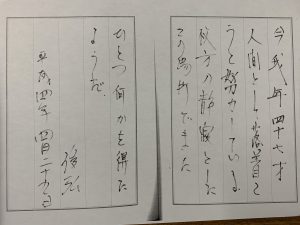 今我年四十七才
人間として落着こ
うと努力している
彼方の静寂とした
この場所でまた
ひとつ何かを得た
ようだ。
平成四年 四月二十九日